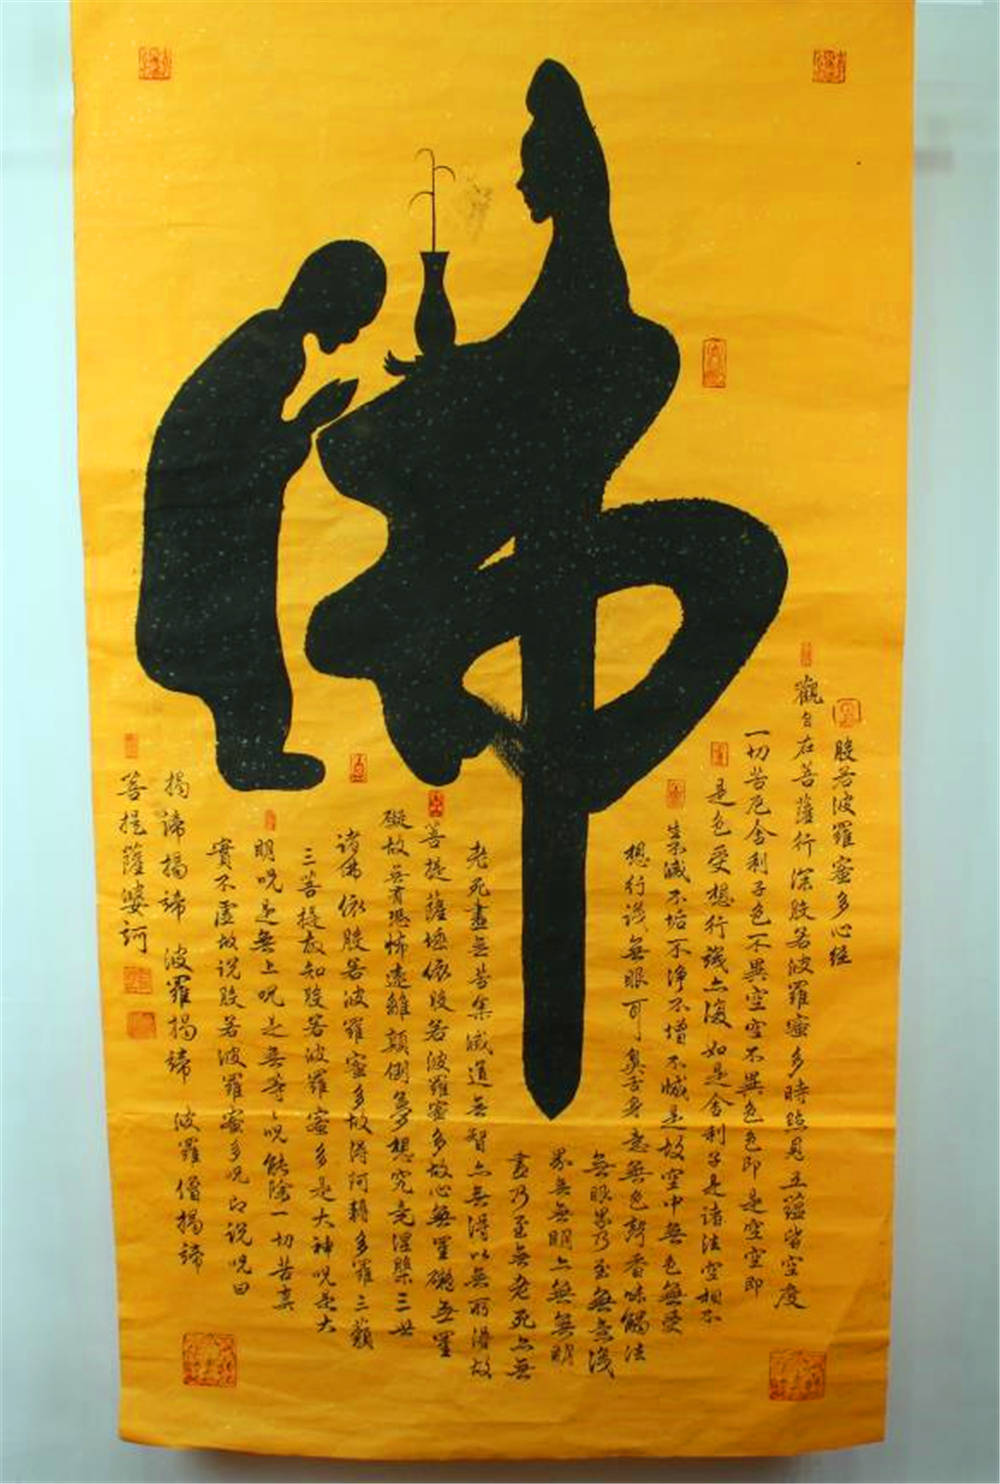 佛
般若波羅蜜多心经
觀自在菩薩行深般若波羅蜜多時照見五蕴皆空度
一切苦厄舍利子色不異空空不異色色即是空空即
是色受想行識亦復如是舍利子是诸法空相不
生滅不垢不浄不增不减是故空中無色無受
想行識無眼耳鼻舌身意無色聲香味觸法
無眼界乃至無意識
界無無明亦無無明
盡乃至無老死亦無
老死盡無苦集滅道無智亦無得以無所得故
菩提薩埵依般若波羅蜜多故心無罣礙無罣
礙故無有恐怖遠離顛倒夢想究竟涅槃三世
诸佛依般若波羅蜜多故得阿耨多羅三藐
三菩提故知般若波羅蜜多是大神咒是大
明咒是無上咒是無等々咒能除一切苦真
實不虚故说般若波羅蜜多咒即说咒曰
揭諦揭諦 波羅揭諦 波羅僧揭諦
菩提薩婆訶